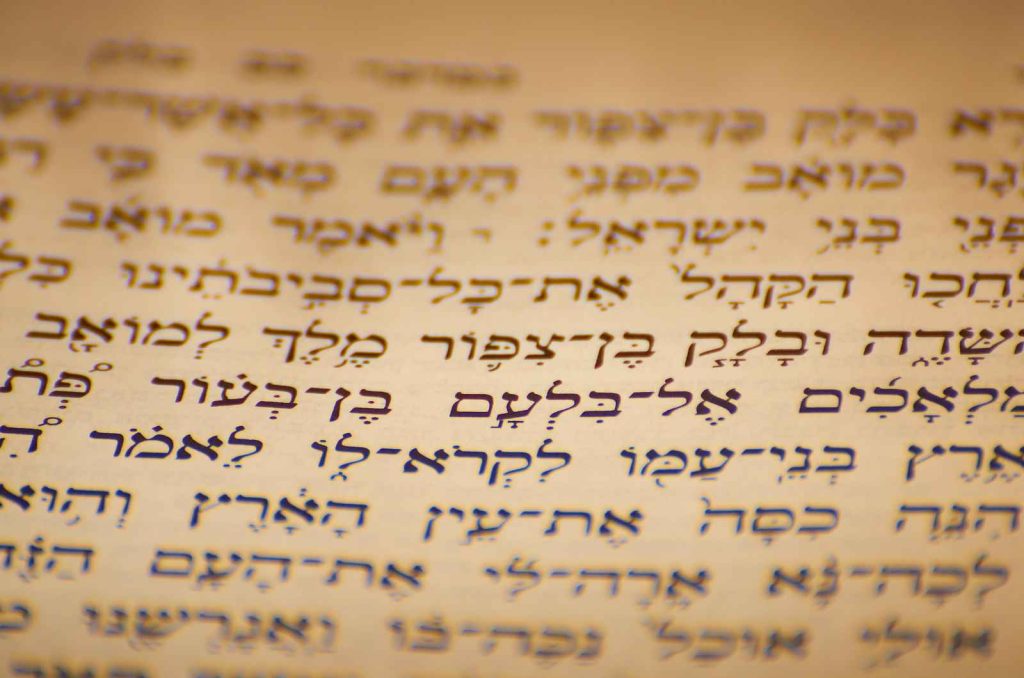 במדבר כב בלק
בָּלָק בֶּן־צִפּוֹר אֵת כָּל־אֲשֶׁר־
מוֹאָב מִפְּנֵי הָעָם מְאֹד כִּי
בְּנֵי יִשְׂרָאֵל: וַיֹּאמֶר מוֹאָב
הַקָּהָל אֶת־כָּל־סְבִיבֹתֵינוּ
הַשָּׂדֶה וּבָלָק בֶּן־צִפּוֹר מֶלֶךְ לְמוֹאָב
מַלְאָכִים אֶל־בִּלְעָם בֶּן־בְּעוֹר
אֶרֶץ בְּנֵי־עַמּוֹ לִקְרֹא־לוֹ לֵאמֹר
הִנֵּה כִסָּה אֶת־עֵין הָאָרֶץ וְהוּא
לְכָה־נָּא אָרָה־לִּי אֶת־הָעָם הַזֶּה
אוּלַי אוּכַל נַכֶּה־בּוֹ וַאֲגָרְשֶׁנּוּ